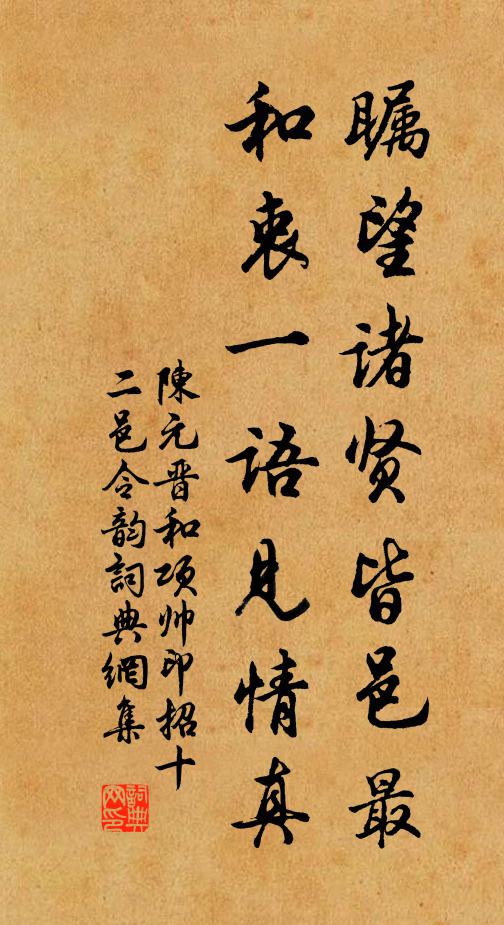 瞩望诸贤皆邑最
和衷一语见情真
陳元晋和项帅印招十
二邑令韵詞典網集
詞典网印